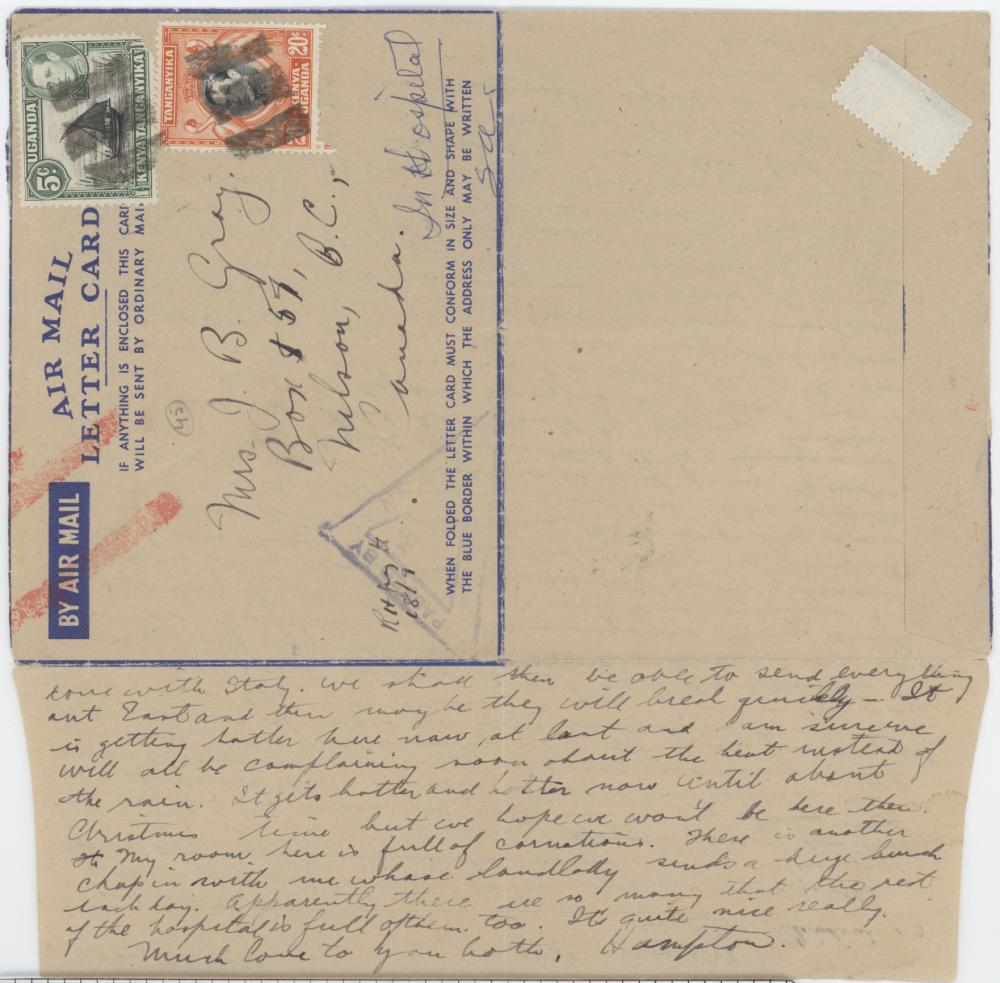 UGANDA
KENYA TANGANYIKA
5c
TANGANYIKA
KENYA-
UGANDA
20c
AIR MAIL
LETTER CARD
IF ANYTHING IS ENCLOSED THIS CARD
WILL BE SENT BY ORDINARY MAIL
BY AIR MAIL
45
Mrs. J. B. Gray.
Box 857,
Nelson, B.C.,
Canada.
In Hospital
PASSED BY
1819
WHEN FOLDED THE LETTER CARD MUST CONFORM IN SIZE AND SHAPE WITH
THE BLUE BORDER WITHIN WHICH THE ADDRESS ONLY MAY BE WRITTEN
done with Italy. We shall then be able to send everything
out East and then maybe they will break quickly - It
is getting hotter here now, at last and am sure we
will all be complaining soon about the heat instead of
the rain. It gets hotter and hotter now until about
Christmas time but we hope we won't be here then.
My room here is full of carnations. There is another
chap in with me whose landlady sends a huge bunch
each day. Apparently there are so many that the rest
of the hospital is full of them too. It's quite nice really.
Much love to you both, Hampton.